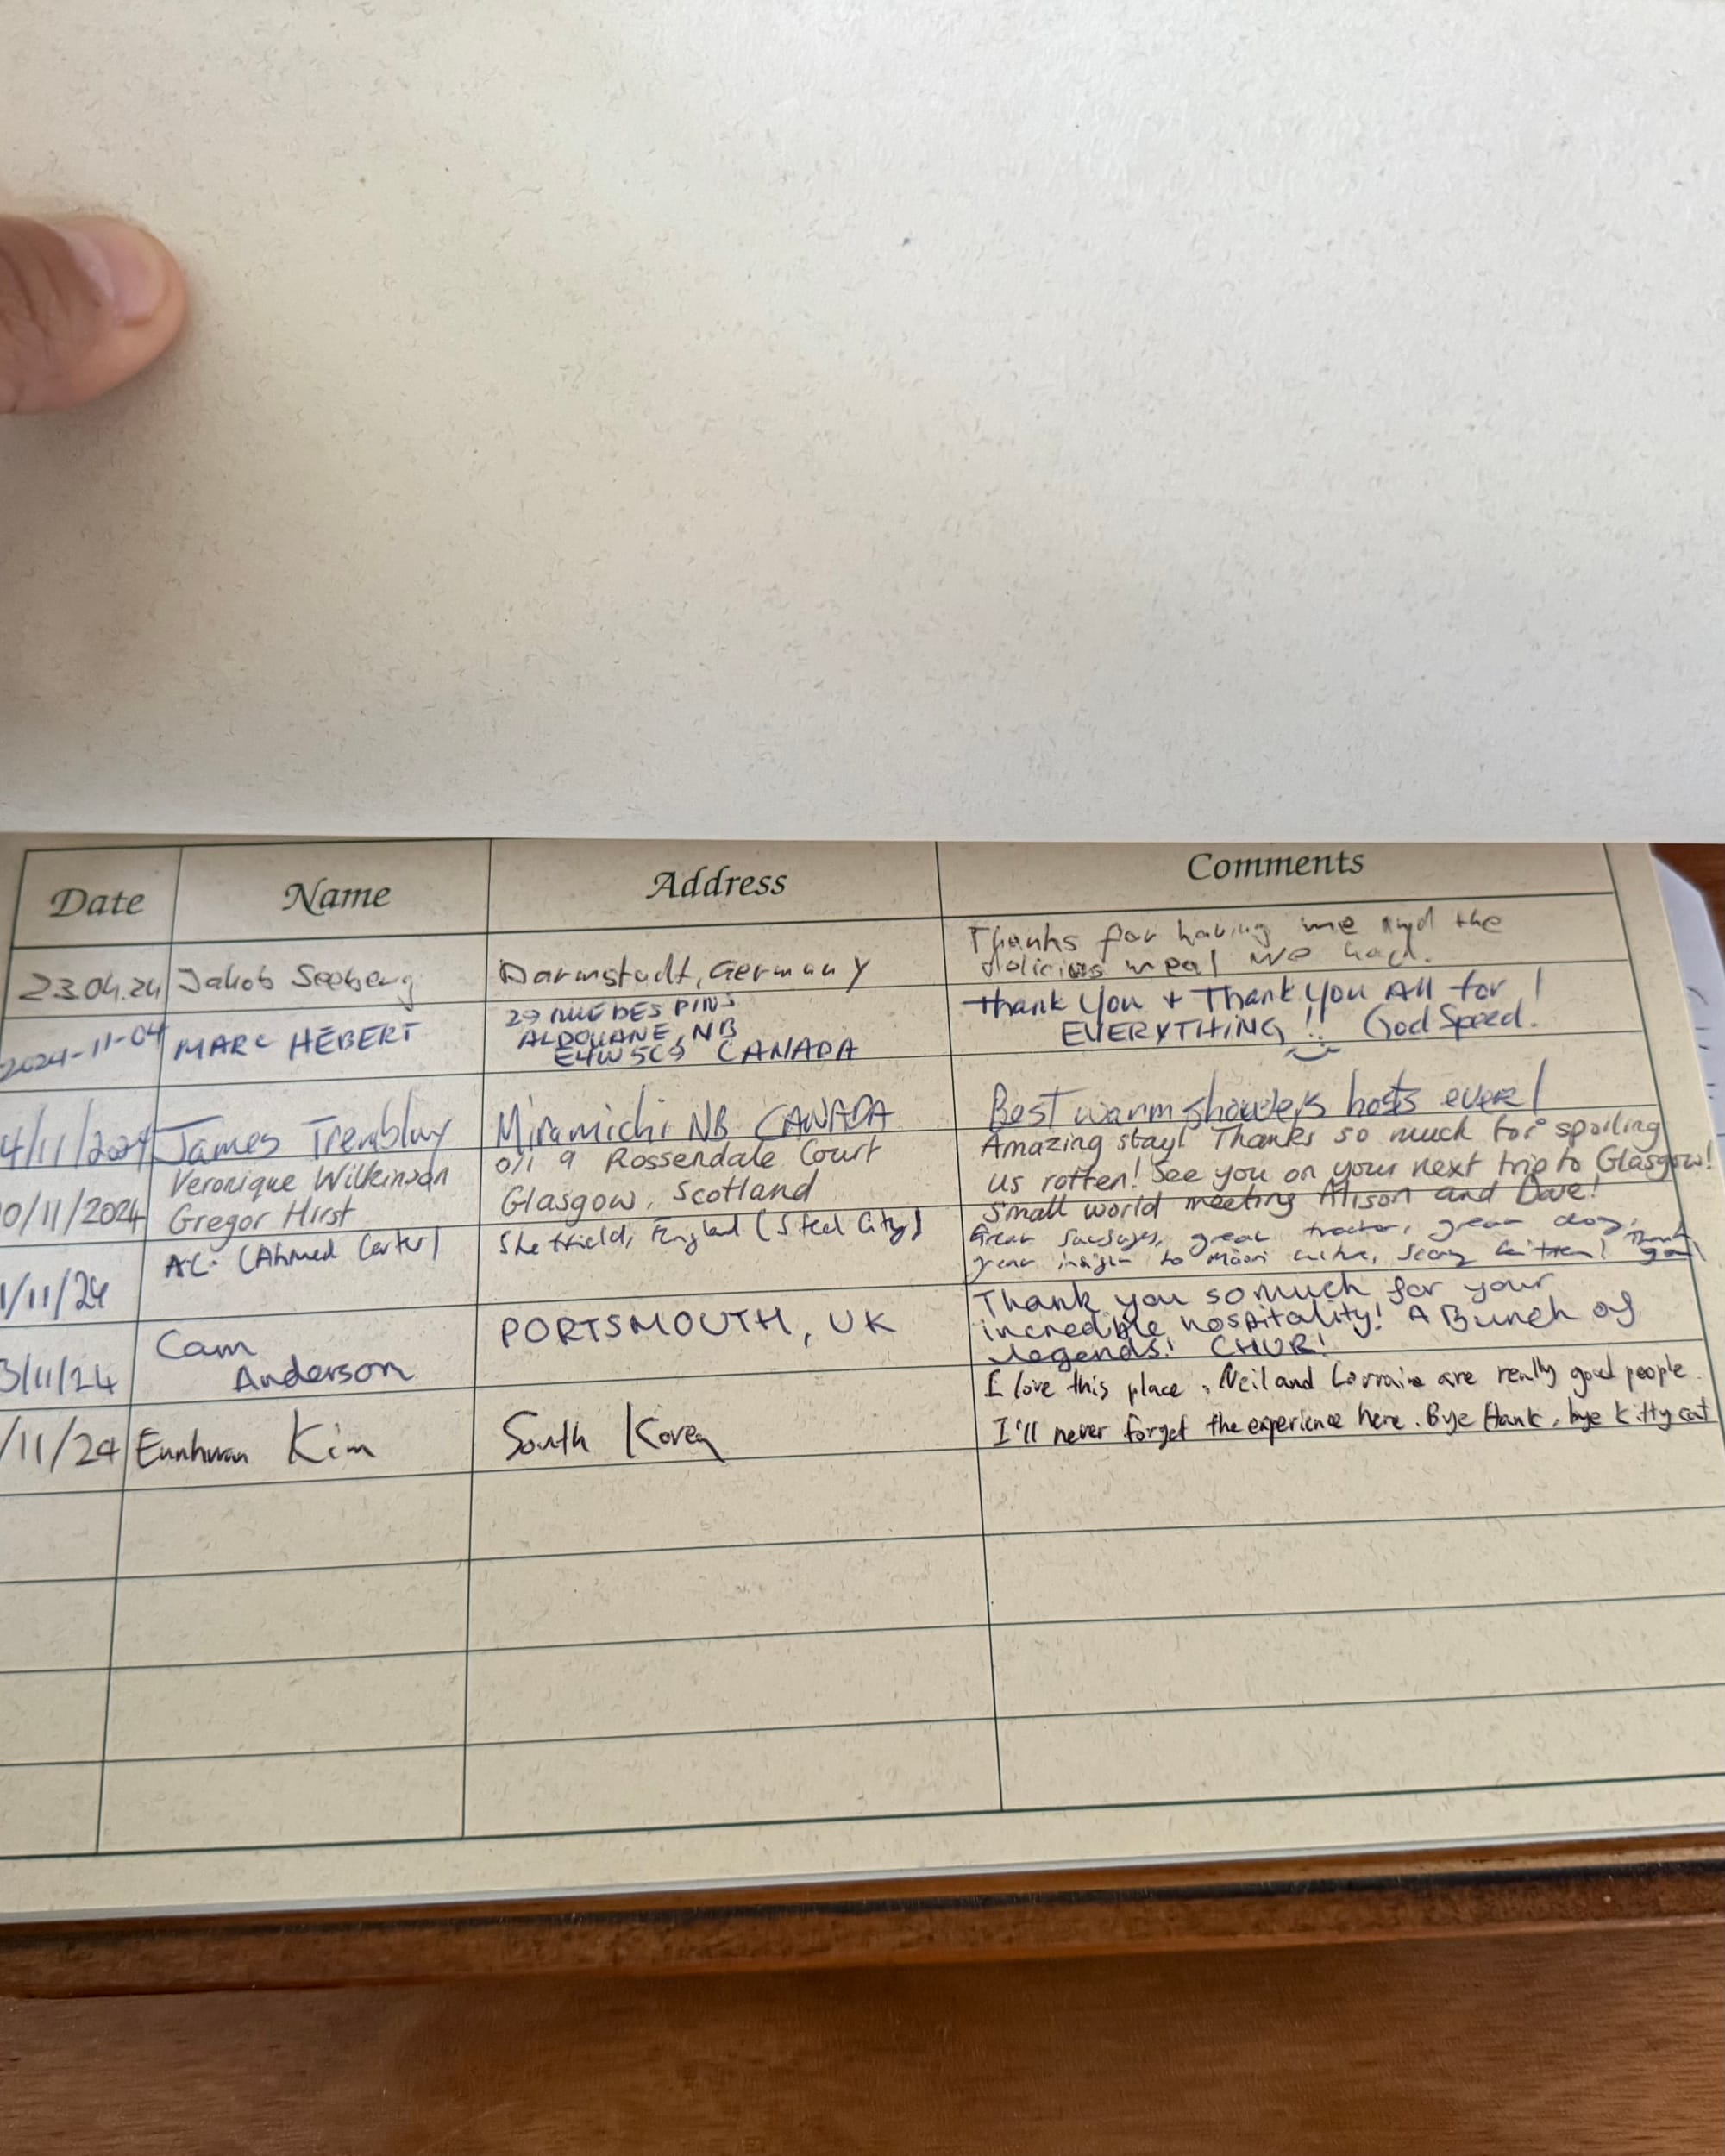 Date Name Address Comments
23.04.24 Jakob Seeberg Darmstadt, Germany Thanks for having me and the
delicious meal we had.
2024-11-04 MARC HÉBERT 29 RUE DES PINS
ALDOUANE, NB
E4W 5C9 CANADA
Thank You + Thank You All for !
EVERYTHING!! God Speed.
4/11/2024 James Tremblay Miramichi NB CANADA Best warmshowers hosts ever!
0/11/2024 Veronique Wilkinson
Gregor Hirst
0/1 9 Rossendale Court
Glasgow, Scotland
Amazing stay! Thanks so much for spoiling
us rotten! See you on your next trip to Glasgow!
Small world meeting Alison and Dave!
1/11/24 AC. (Ahmed Carter) Sheffield, England (Steel City) Great sausages, great tractor, great dog,
great insight to Māori culture, scary kitten! Thank
you!
3/11/24 Cam
Anderson
PORTSMOUTH, UK
Thank you so much for your
incredible hospitality! A Bunch of
legends! CHUR!
/11/24 Eunhwan Kim South Korea I love this place. Neil and Lorraine are really good people.
I'll never forget the experience here. Bye Hank, bye Kitty cat